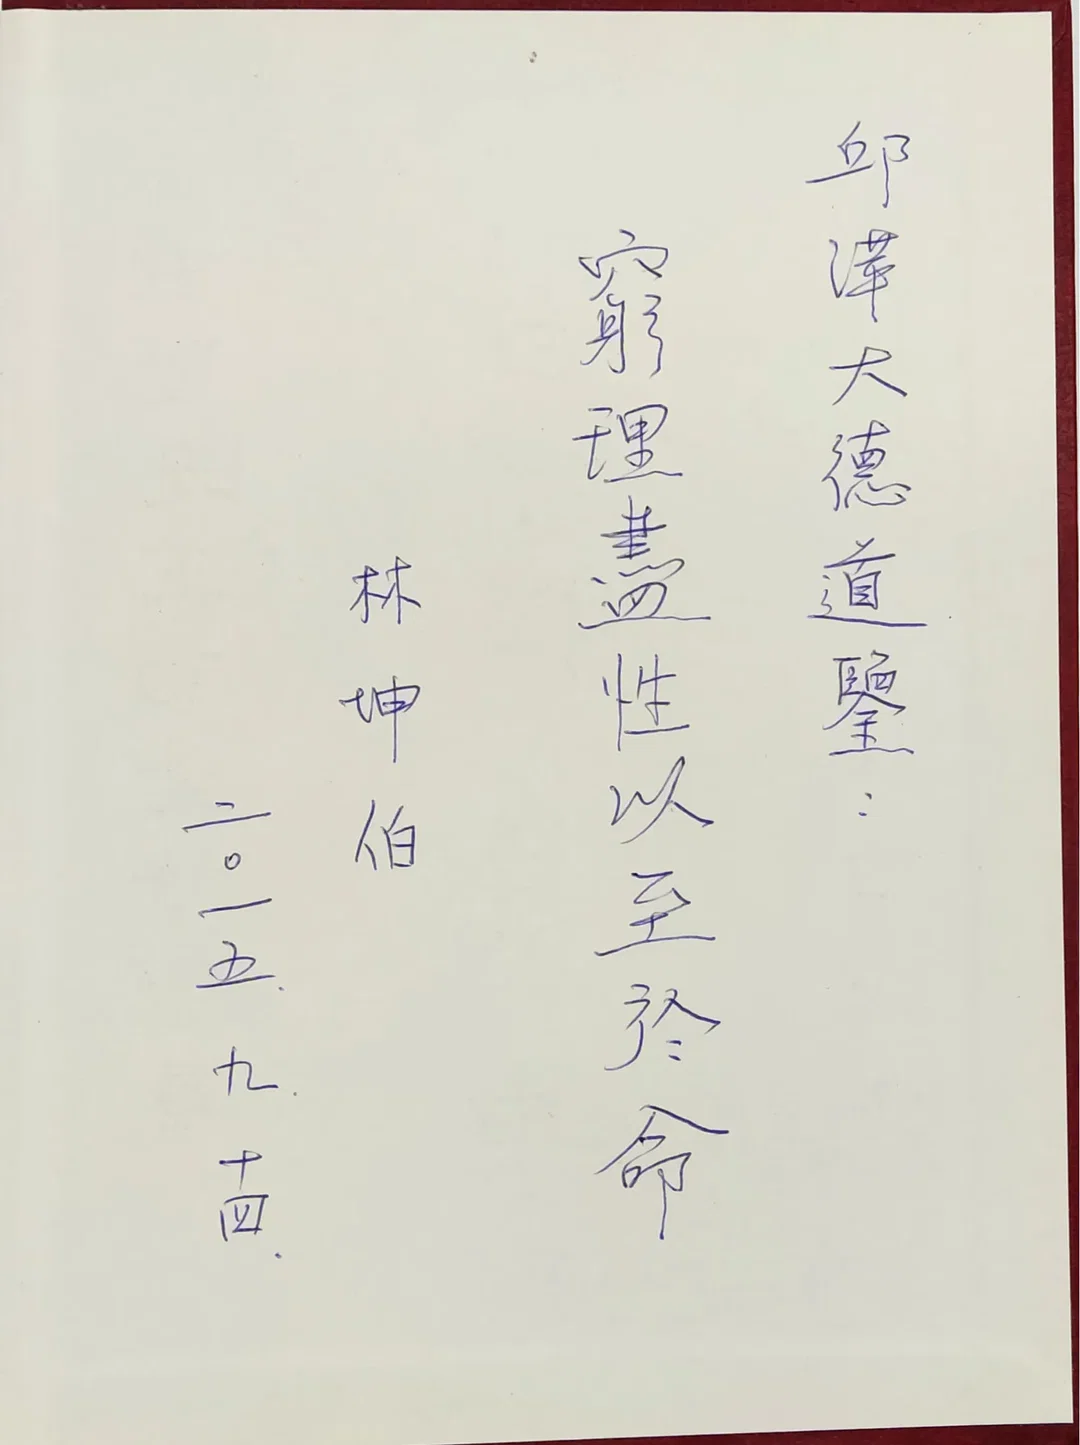 邱澤大德道鑒：
窮理盡性以至於命
林坤伯
二〇一五.九.十四.